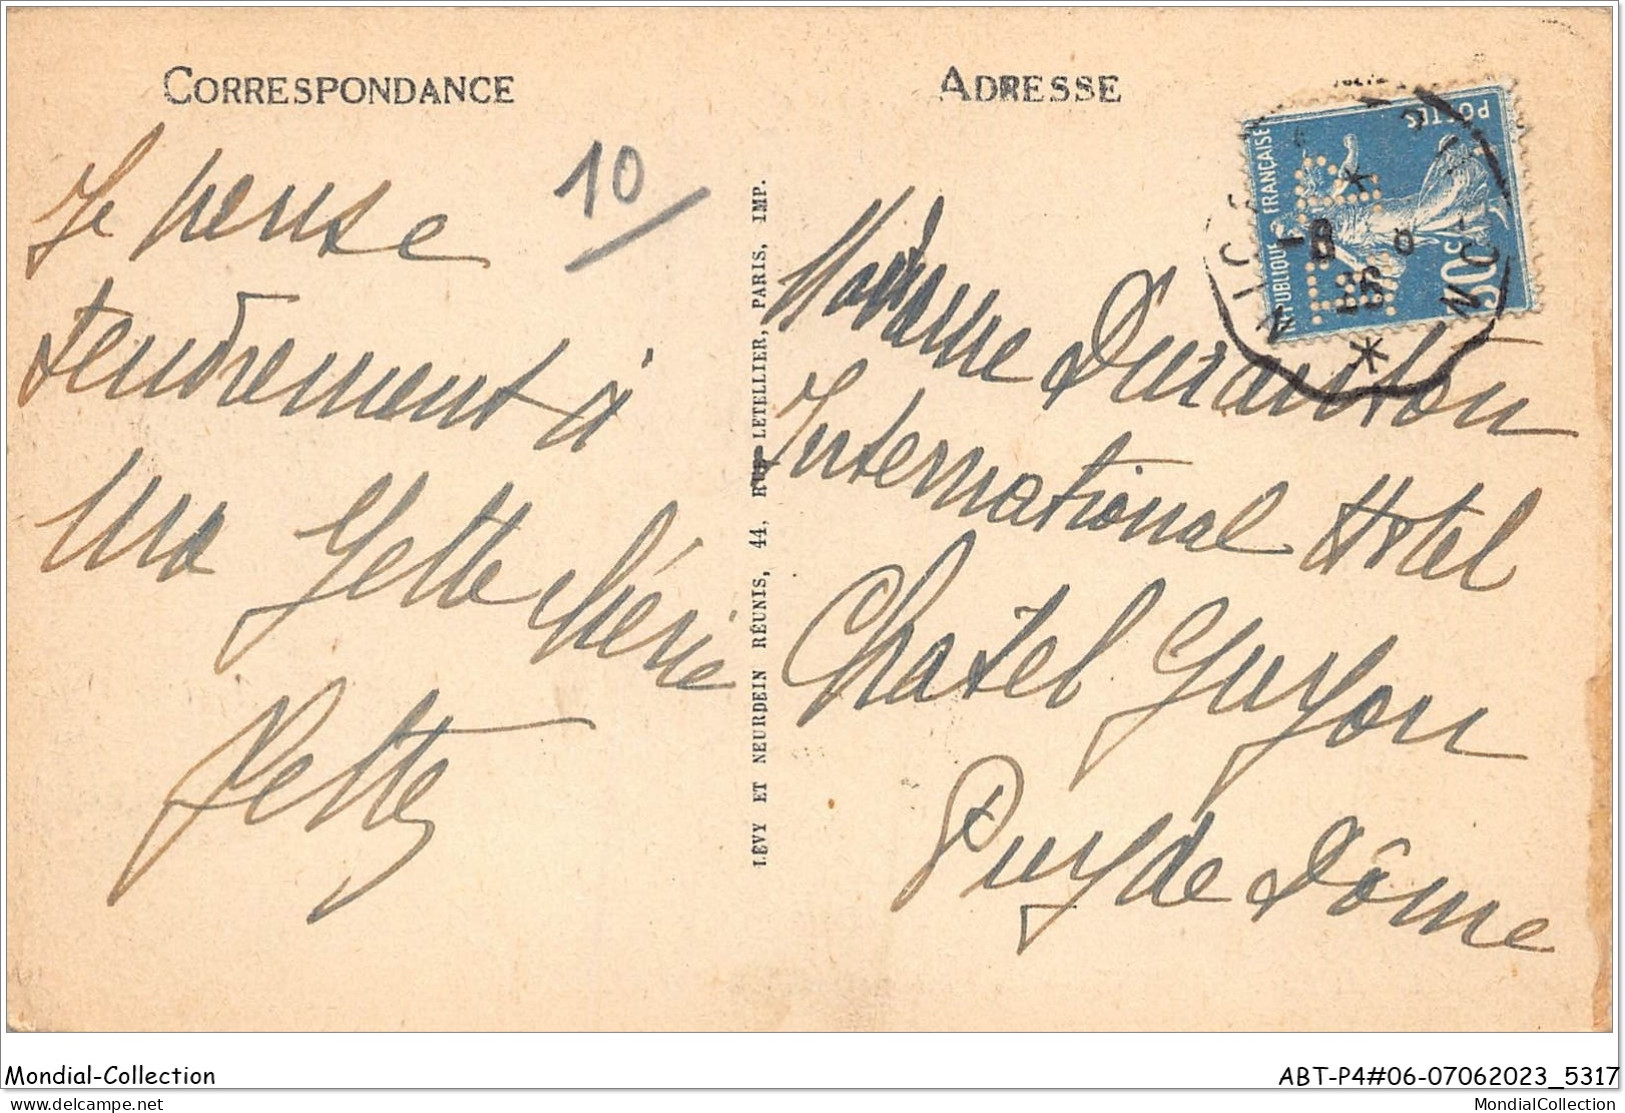 CORRESPONDANCE
ADRESSE
10
Je pense
tendrement à
ma Yette chérie
Yette
LÉVY ET NEURDEIN RÉUNIS, 44, RUE LETELLIER, PARIS, IMP.
RÉPUBLIQUE FRANÇAISE
POSTES
50c
-8
26
Madame Duranton
International Hotel
Chatel Guyon
Puy de Dôme
Mondial-Collection
ABT-P4#06-07062023_5317
delcampe.net
MondialCollection